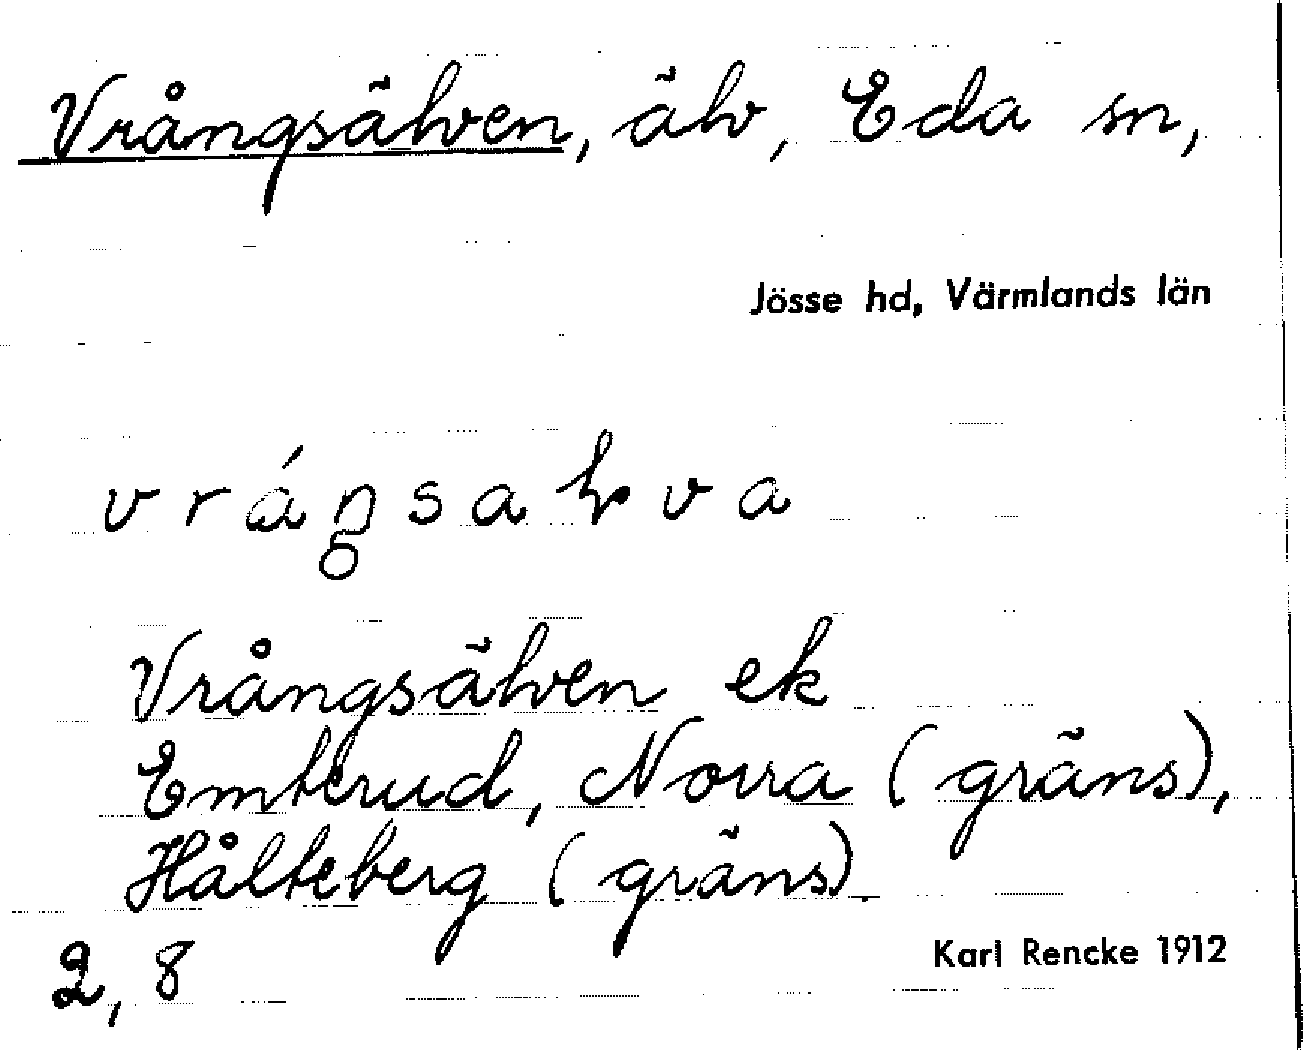 Vrångsälven, älv, Eda sn,
Jösse hd, Värmlands län
Vrångsälven ek
Emterud, Norra (gräns),
Hålteberg (gräns)
2, 8
Karl Rencke 1912